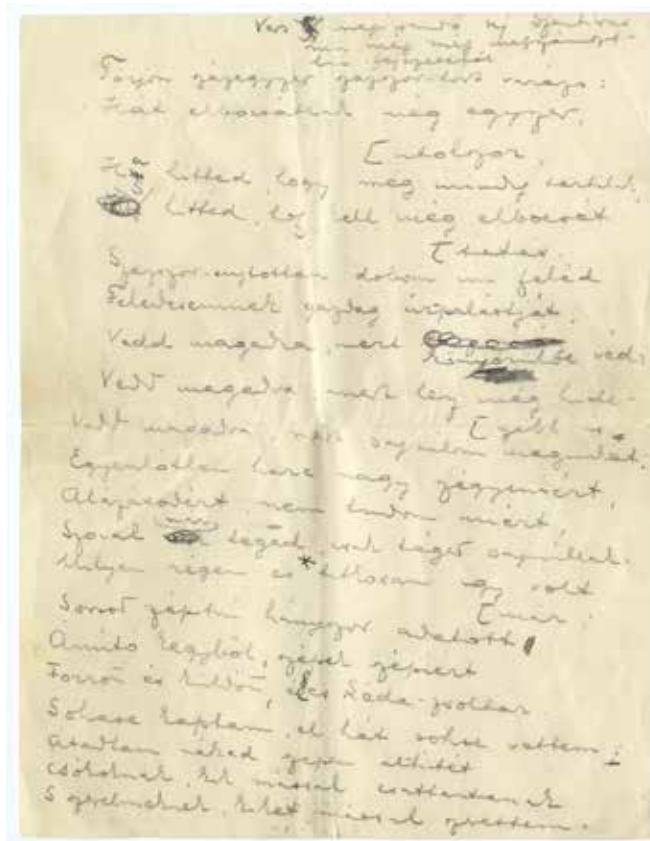 Törjön százegyszer százszor-tört varázs:
Hát elbocsátlak még egyszer,
[utolszor,
Ha hitted, hogy még mindig tartlak,
hitted, hogy kell még elbocsát-
[tatás.
Százszor-sujtottan dobom im feléd
Feledésemnek gazdag úr-palástját.
Vedd magadra, mert
Vedd magadra mert lesz még hide-
[gebb is.
Vedd magadra, mert sajnálom magunkat.
Egyenlőtlen harc nagy szégyenért,
Alázásodért nem tudom miért,
Szóval téged, csak téged sajnállak.
Milyen régen és titkosan így volt
[már:
Sorsod szépítni hányszor adatott
Ámító kegyből, szépek szépiért
Forrott és küldött, Léda-zsoltár
Sohase kaptam, el hát sohse vettem:
Átadtam néked szépen álhitét
Csókoknak, kik mással csattantanak
S szerelmeknek, kiket mással szerettem.